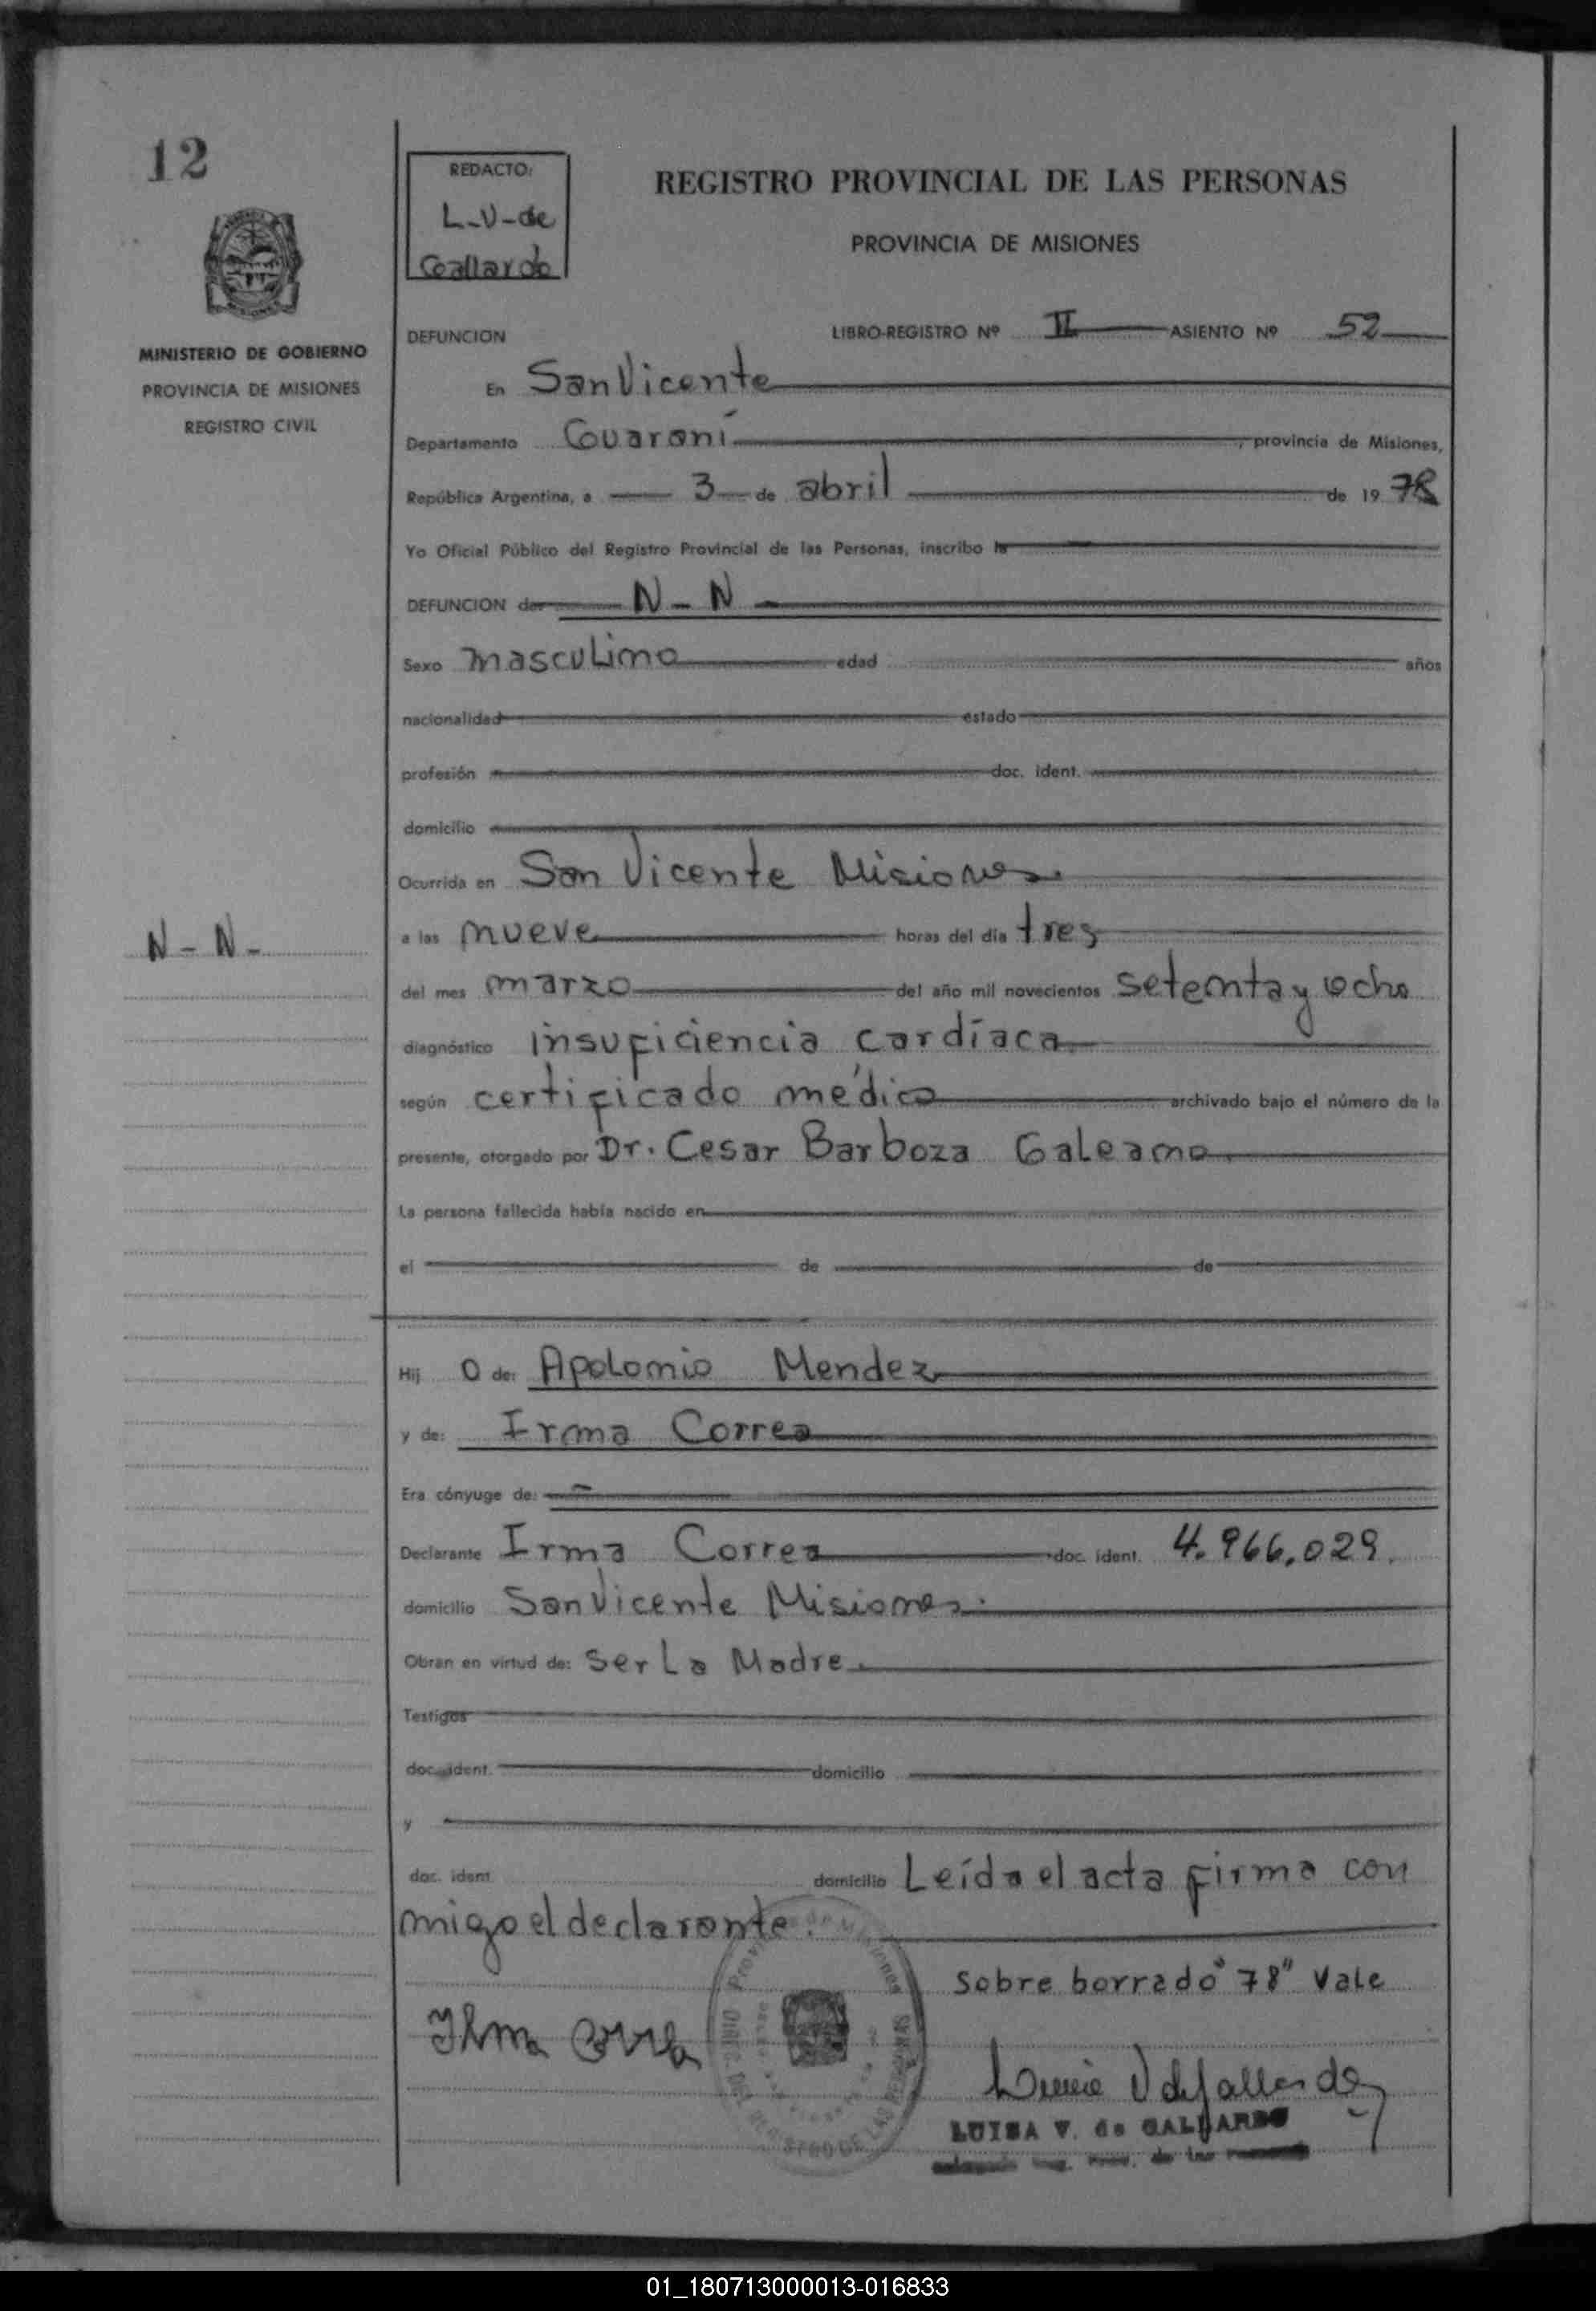 12
REDACTO:
L-V-de
Gallardo
REGISTRO PROVINCIAL DE LAS PERSONAS
PROVINCIA DE MISIONES
MINISTERIO DE GOBIERNO
PROVINCIA DE MISIONES
REGISTRO CIVIL
DEFUNCION LIBRO-REGISTRO Nº II ASIENTO Nº 52
En San Vicente
Departamento Guaraní, provincia de Misiones,
República Argentina, a 3 de abril de 1978
Yo Oficial Público del Registro Provincial de las Personas, inscribo la
DEFUNCION de: N-N
Sexo masculino edad años
nacionalidad estado
profesión doc. ident.
domicilio
Ocurrida en San Vicente Misiones.
N-N-
a las nueve horas del día tres
del mes marzo del año mil novecientos setenta y ocho
diagnóstico insuficiencia cardíaca
según certificado médico archivado bajo el número de la
presente, otorgado por Dr. Cesar Barboza Galeano.
La persona fallecida había nacido en
el de de
Hij o de: Apolonio Mendez
y de: Irma Correa
Era cónyuge de:
Declarante Irma Correa doc. ident. 4.966.029.
domicilio San Vicente Misiones.
Obran en virtud de: Ser La Madre.
Testigos
doc. ident. domicilio
y
doc. ident. domicilio Leída el acta firma con
migo el declarante.
Sobre borrado "78" Vale
Irma Correa
LUISA V. de GALLARDO
01_180713000013-016833